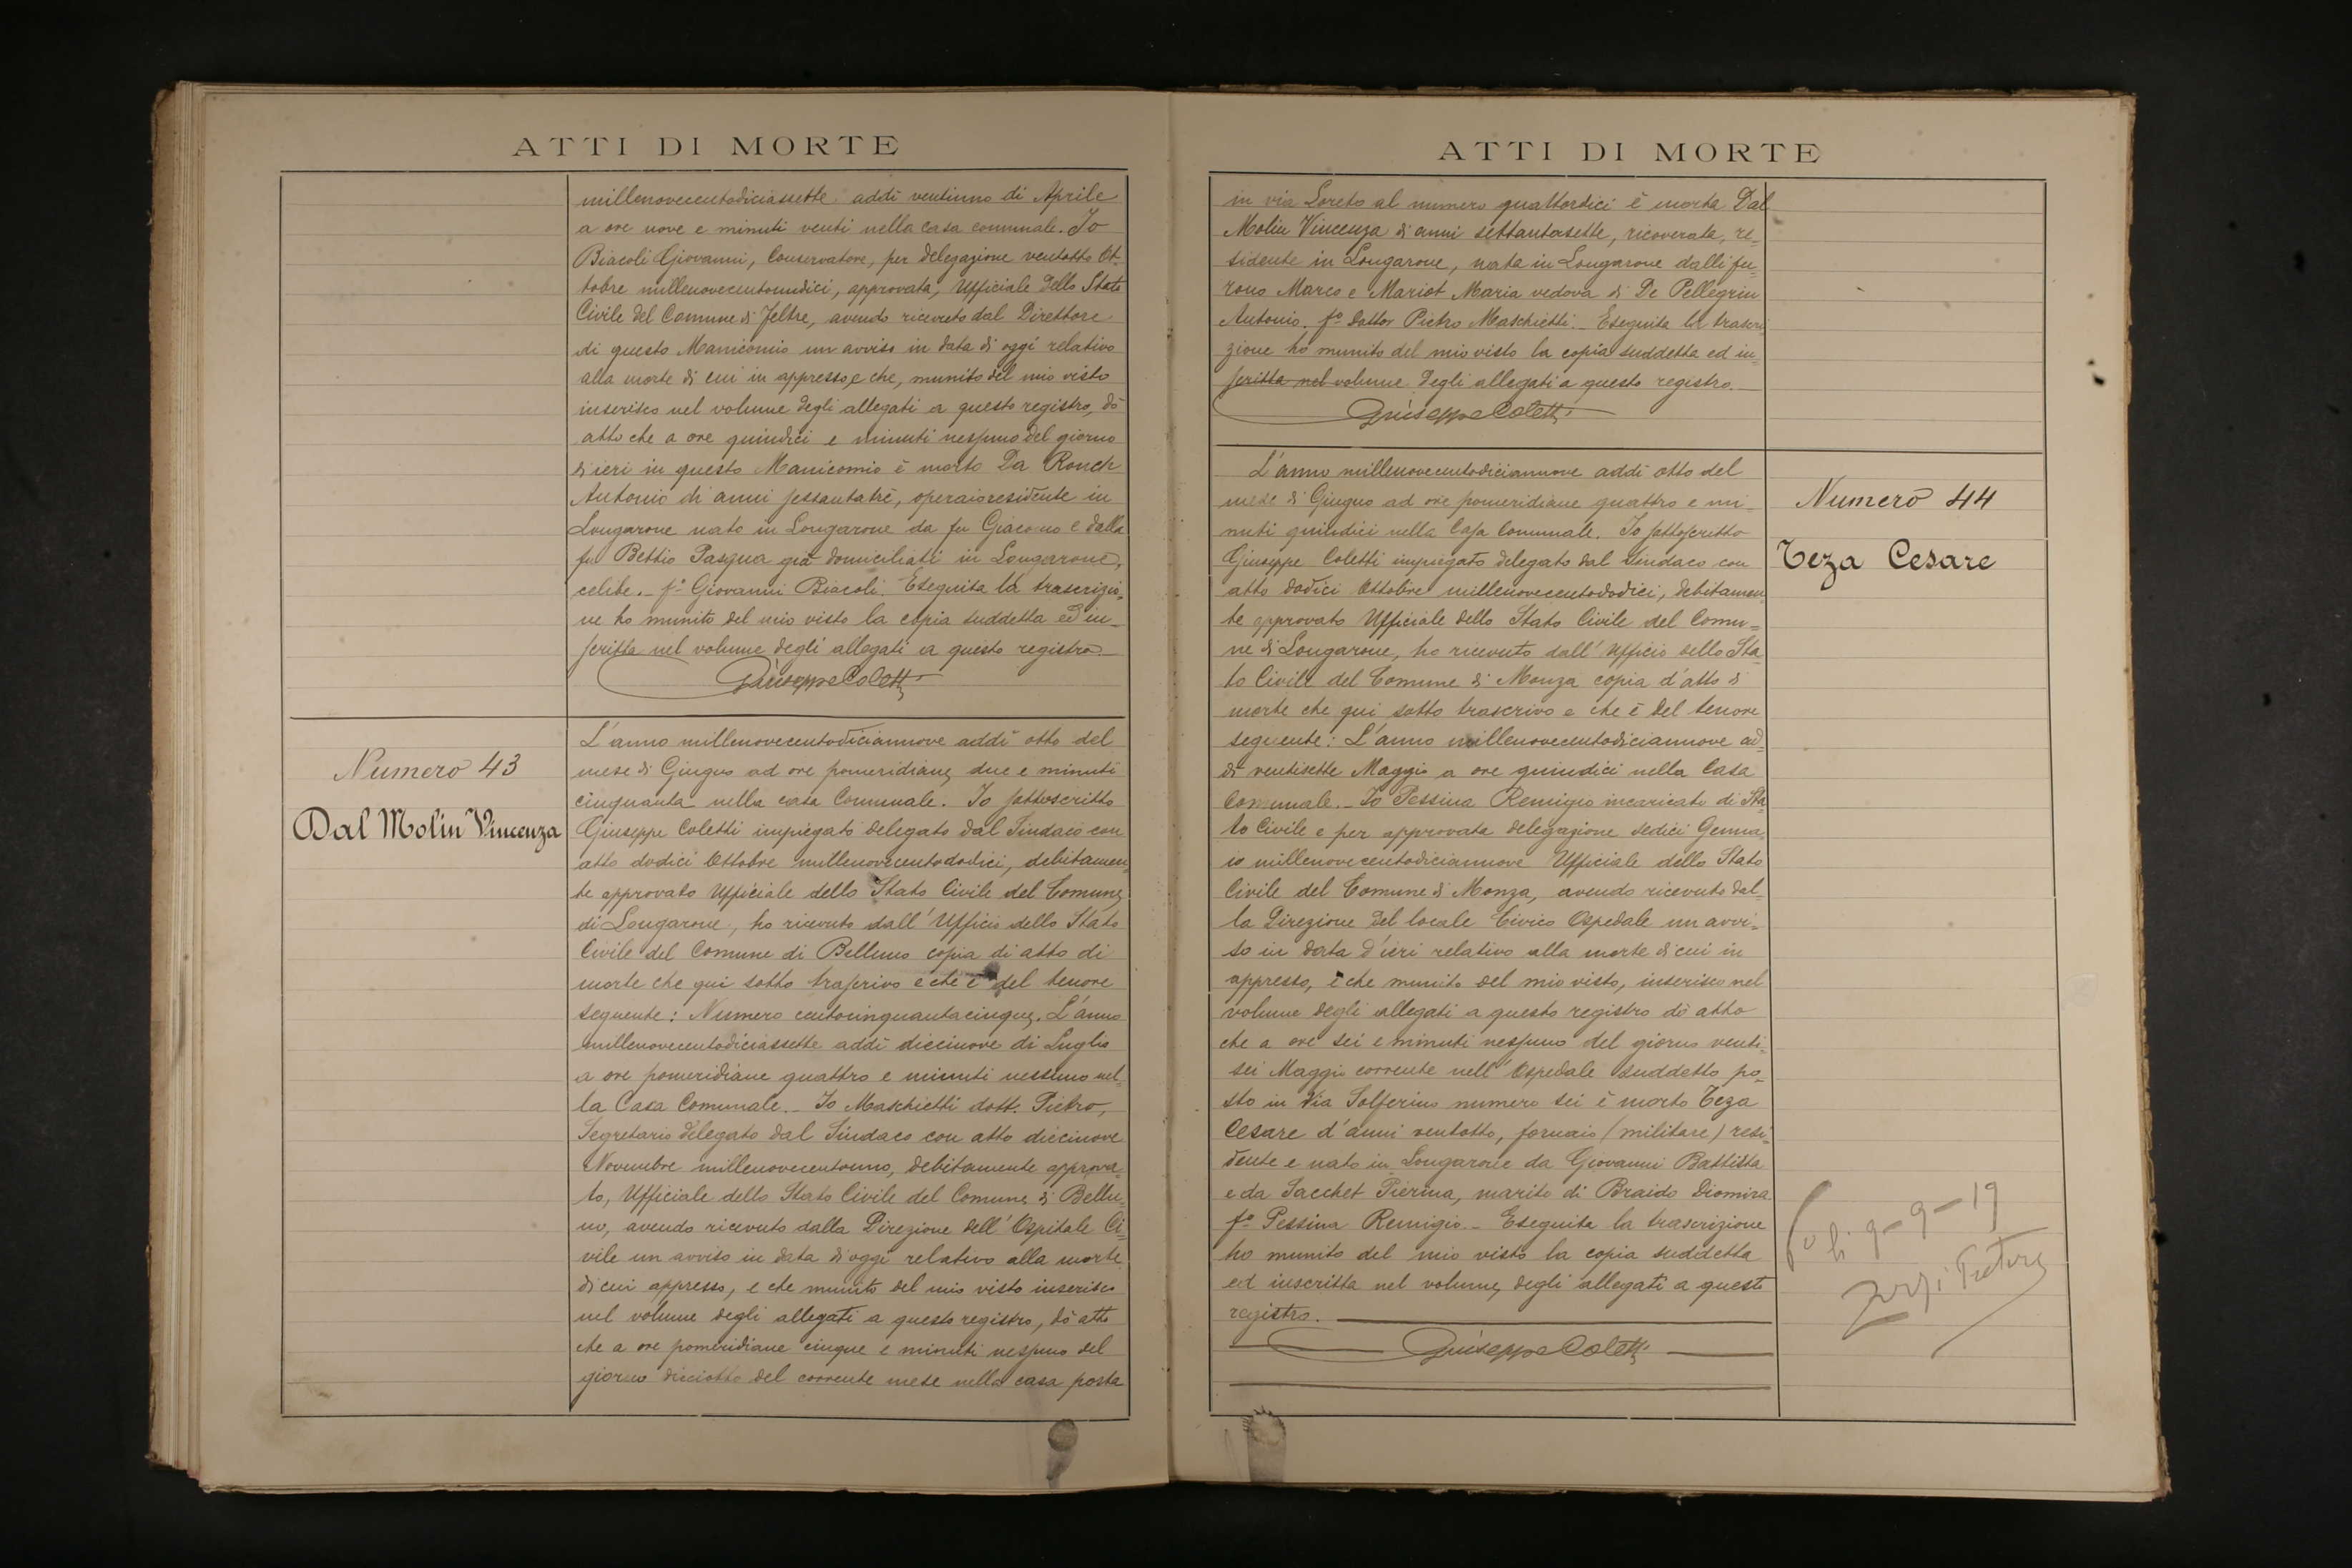 ATTI DI MORTE
millenovecentodiciassette addì ventuno di Aprile
a ore nove e minuti venti nella casa comunale. Io
Biacoli Giovanni, Conservatore, per delegazione ventotto Ot-
tobre millenovecentoundici, approvata, Ufficiale dello Stato
Civile del Comune di Feltre, avendo ricevuto dal Direttore
di questo Manicomio un avviso in data di oggi relativo
alla morte di cui in appresso, e che, munito del mio visto
inserisco nel volume degli allegati a questo registro, dò
atto che a ore quindici e minuti nessuno del giorno
di ieri in questo Manicomio è morto Da Ronch
Antonio di anni sessantatrè, operaio residente in
Longarone nato in Longarone da fu Giacomo e dalla
fu Bettio Pasqua già domiciliati in Longarone,
celibe. - f° Giovanni Biacoli. Eseguita la trascrizio-
ne ho munito del mio visto la copia suddetta ed in-
scritta nel volume degli allegati a questo registro.
Giuseppe Coletti
Numero 43
Dal Molin Vincenza
L'anno millenovecentodiciannove addì otto del
mese di Giugno ad ore pomeridiane due e minuti
cinquanta nella casa Comunale. Io sottoscritto
Giuseppe Coletti impiegato delegato dal Sindaco con
atto dodici Ottobre millenovecentododici, debitamen-
te approvato Ufficiale dello Stato Civile del Comune
di Longarone, ho ricevuto dall'Ufficio dello Stato
Civile del Comune di Belluno copia di atto di
morte che qui sotto trascrivo e che è del tenore
seguente: Numero centocinquantacinque. L'anno
millenovecentodiciassette addì diecinove di Luglio
a ore pomeridiane quattro e minuti nessuno nel-
la Casa Comunale. - Io Maschietti dott. Pietro,
Segretario delegato dal Sindaco con atto diecinove
Novembre millenovecentouno, debitamente approva-
to, Ufficiale dello Stato Civile del Comune di Bellu-
no, avendo ricevuto dalla Direzione dell'Ospitale Ci-
vile un avviso in data di oggi relativo alla morte
di cui appresso, e che munito del mio visto inserisco
nel volume degli allegati a questo registro, dò atto
che a ore pomeridiane cinque e minuti nessuno del
giorno diciotto del corrente mese nella casa posta
ATTI DI MORTE
in via Loreto al numero quattordici è morta Dal
Molin Vincenza di anni settantasette, ricoverata, re-
sidente in Longarone, nata in Longarone dalli fu-
rono Marco e Mariot Maria vedova di De Pellegrin
Antonio. f° Dottor Pietro Maschietti. - Eseguita la trascri-
zione ho munito del mio visto la copia suddetta ed in-
scritta nel volume degli allegati a questo registro.
Giuseppe Coletti
L'anno millenovecentodiciannove addì otto del
mese di Giugno ad ore pomeridiane quattro e mi-
nuti quindici nella Casa Comunale. Io sottoscritto
Giuseppe Coletti impiegato delegato dal Sindaco con
atto dodici Ottobre millenovecentododici, debitamen-
te approvato Ufficiale dello Stato Civile del Comu-
ne di Longarone, ho ricevuto dall'Ufficio dello Sta-
to Civile del Comune di Monza copia d'atto di
morte che qui sotto trascrivo e che è del tenore
seguente: L'anno millenovecentodiciannove ad-
dì ventisette Maggio a ore quindici nella Casa
Comunale. - Io Pessina Remigio incaricato di Sta-
to Civile e per approvata delegazione sedici Genna-
io millenovecentodiciannove Ufficiale dello Stato
Civile del Comune di Monza, avendo ricevuto dal-
la Direzione del locale Civico Ospedale un avvi-
so in data d'ieri relativo alla morte di cui in
appresso, e che munito del mio visto, inserisco nel
volume degli allegati a questo registro dò atto
che a ore sei e minuti nessuno del giorno venti-
sei Maggio corrente nell'Ospedale suddetto po-
sto in Via Solferino numero sei è morto Teza
Cesare d'anni ventotto, fornaio (militare) resi-
dente e nato in Longarone da Giovanni Battista
e da Sacchet Pierina, marito di Braido Diomira
f° Pessina Remigio. - Eseguita la trascrizione
ho munito del mio visto la copia suddetta
ed inscritta nel volume degli allegati a questo
registro.
Giuseppe Coletti
Numero 44
Teza Cesare
li 9-9-19